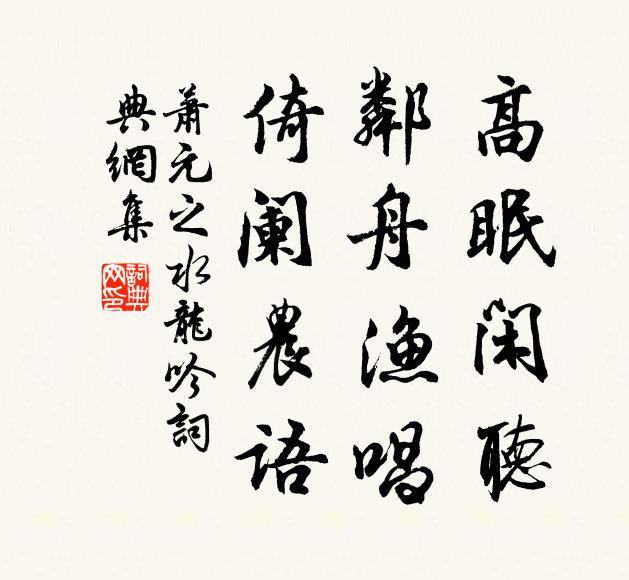 高眠闲聽
鄰舟漁唱
倚阑農語
蕭元之水龍吟詞
典網集
詞典网印